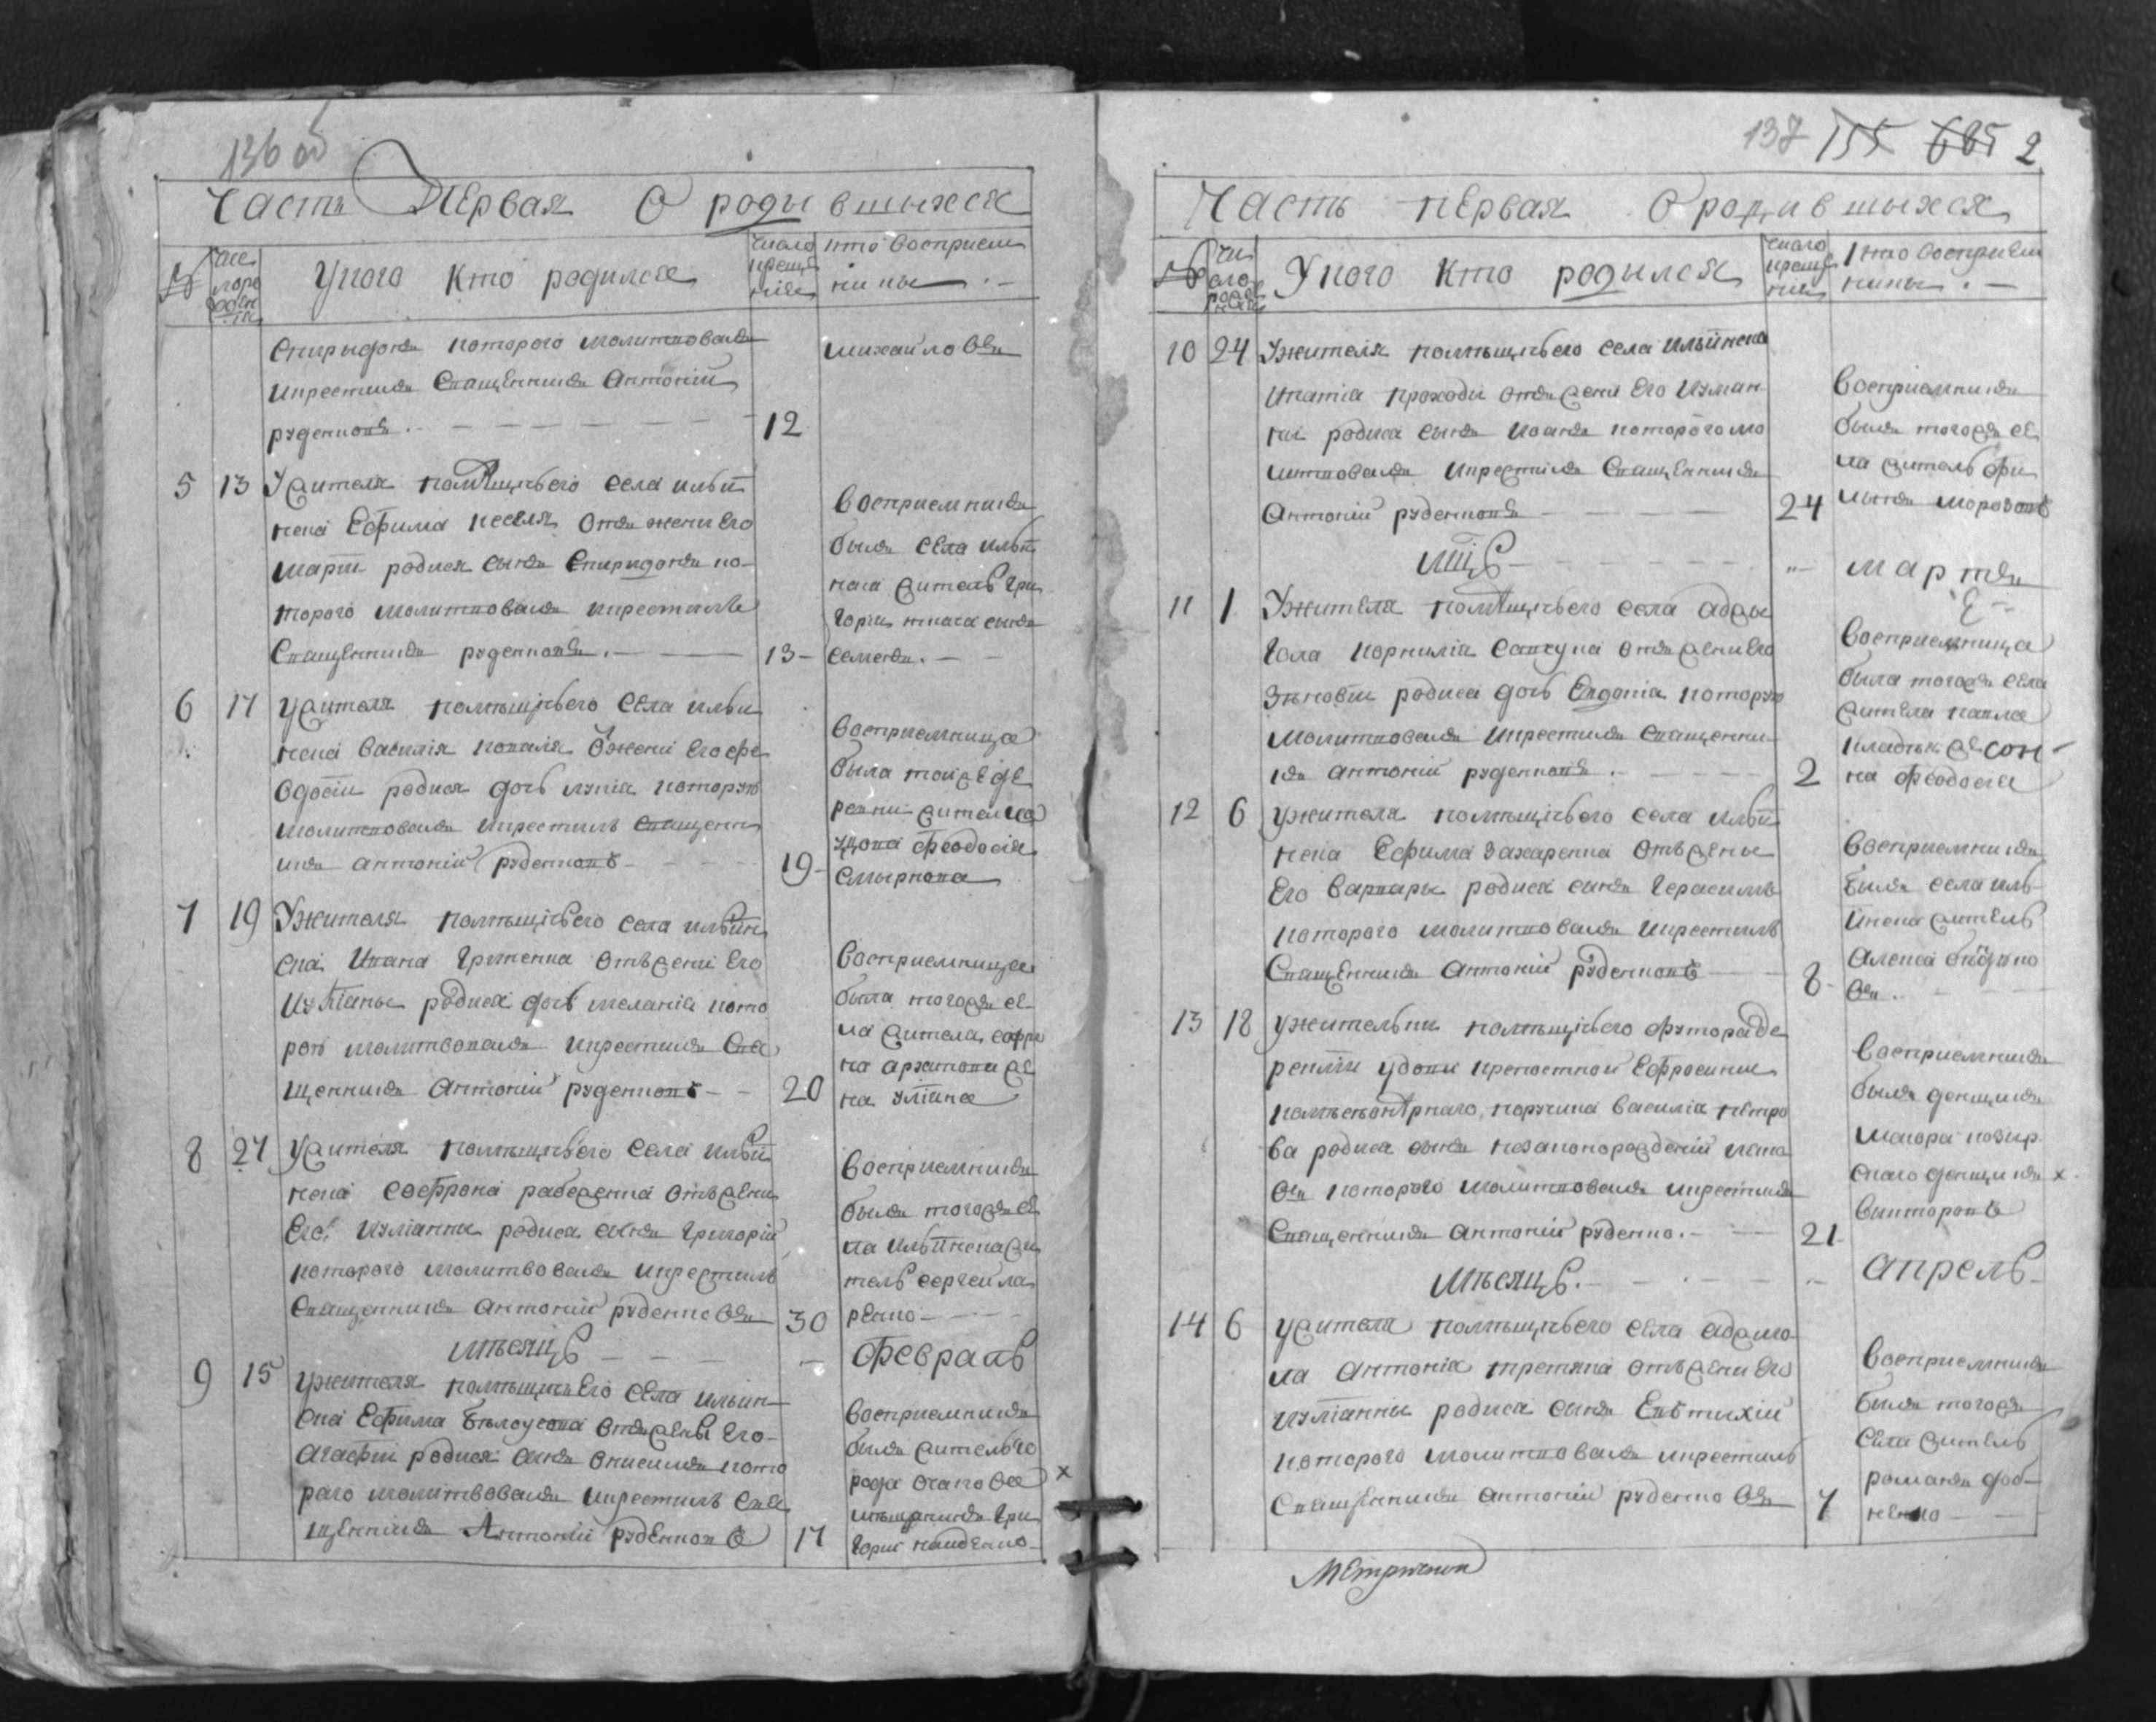 136 об
Часть Первая О родившыхся
№
число рождения
У кого кто родился
число крещения
кто восприемники
Спирыдонъ которого молитвовалъ
икрестилъ Священникъ Антоній
руденковъ. 12
михайловъ
5 13 Ужителя помѣщичьего села ильи
нска Ефима киселя отъ жени Его
марти родися сынъ Спиридонъ ко-
торого молитвовалъ икрестилъ
Священникъ руденковъ. 13
восприемникъ
былъ села ильи
нска житель гри
горія сынъ
семенъ.
6 17 ужителя помѣщичьего села ильи
нска василія коваля Ӧжени его фе
одосіи родися дочь которую
молитвовалъ икрестилъ священни
икъ антоній руденковъ 19
восприемница
была тойже де
ревни жителка
вдова феодосія
смырнова
7 19 Ужителя помѣщичьего села ильин
ска Ивана гриценка отъ жени Его
иулІаны родися дочь меланія кото
рою молитвовалъ икрестилъ Свя
щенникъ Антоній руденковъ 20
восприемница
была тогожъ се
ла жителя софро
на же
на уліяна
8 27 ужителя помѣщичьего села ильи
нска софрона отъ жени
Его иуліанны родися сынъ григорій
которого молитвовалъ икрестилъ
Священникъ антоній руденковъ 30
восприемникъ
былъ тогожъ се
ла ильинска жи
тель сергей ла
ренко
мѣсяцъ февраль
9 15 ужителя помѣщичьего села ильин
ска Ефима бѣлоусова отъ жены его
агафіи родися сынъ онисимъ кото
раго молитвовалъ икрестилъ свя
щенникъ Антоній руденковъ 17
восприемникъ
былъ житель го
рода очакова х
мѣщанинъ гри
горій найденко
137 155 685 2
Часть первая О родившыхся
№
число рождения
У кого кто родился
число крещения
кто восприемники
10 24 Ужителя помѣщичьего села ильинска
ипатіа отъ жени Его иулиан
ни родися сынъ иоанъ которого мо
литвовалъ икрестилъ Священникъ
Антоній руденковъ 24
восприемникъ
былъ тогожъ се
ла житель фи
липъ морозовъ
мцъ мартъ
11 1 Ужителя помѣщичьего села аджы
гола корнилія савсуна отъ жени Его
зѣновіи родися дочь Евдокіа которую
молитвовалъ икрестилъ священни
къ антоній руденковъ. 2
восприемница
была тогожъ села
жителя павла
же
на феодосія
12 6 ужителя помѣщичьего села ильи
нска Ефима захаренка отъ жены
Его варвары родися сынъ герасимъ
которого молитвовалъ икрестилъ
Священникъ антоній руденковъ 8
восприемникъ
былъ села иль
инска житель
алексей
въ.
13 18 ужительки помѣщичьего футора де
ревни удови крепостной Ефросинии
поручика василія петро
ва родися сынъ незаконорожденій иако
въ которого молитвовалъ икрестилъ
Священникъ антоній руденко. 21
восприемникъ
былъ денщикъ
маіора
скаго денщикъ х
викторовъ
мѣсяцъ. апрель
14 6 ужителя помѣщичьего села аджиго
ла антонія третяка отъ жени Его
иуліанны родися сынъ Евътихій
которого молитвовалъ икрестилъ
Священникъ антоній руденковъ 7
восприемникъ
былъ тогожъ
села житель
романъ